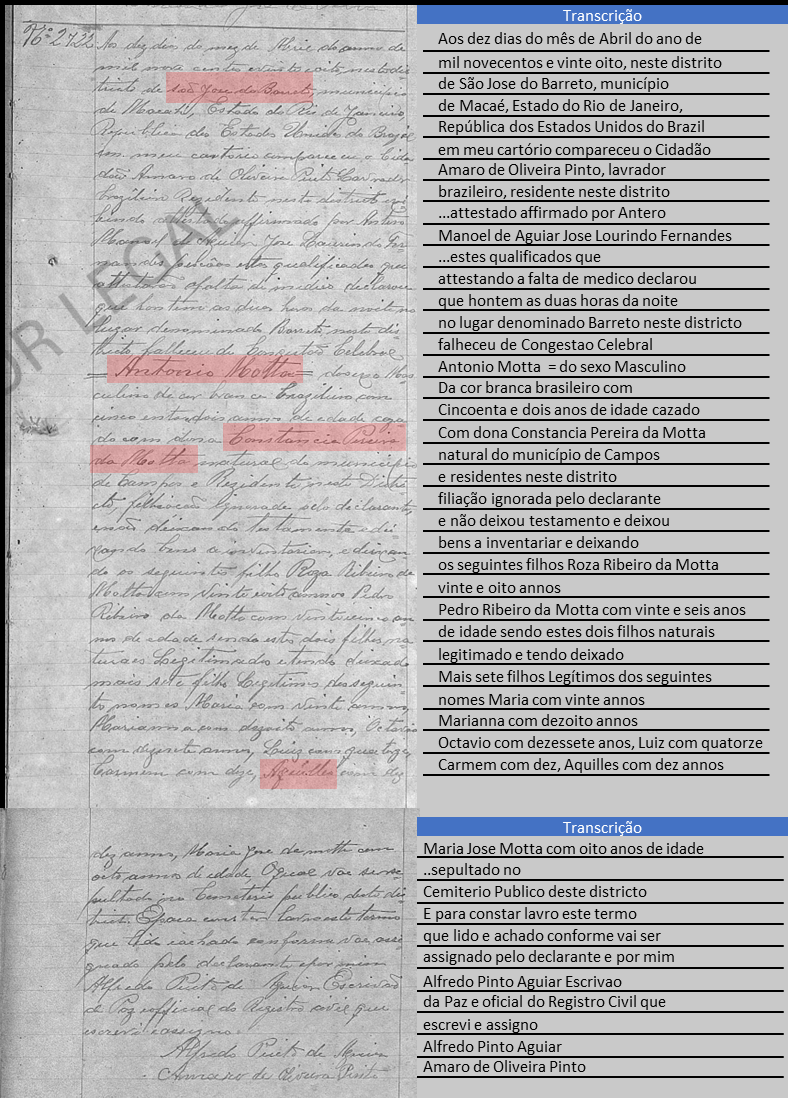 Nº 2722 Aos dez dias do mez de Abril do anno de
mil nove centos e vinte oito, neste dis=
tricto de São Jose do Barreto, municipio
de Macahé, Estado do Rio de Janeiro,
Republica dos Estados Unidos do Brazil
em meu cartorio compareceu o Cida
dão Amaro de Oliveira Pinto Lavrador
brazileiro Rezidente neste districto
attestado affirmado por Antero
Manoel de Aguiar Jose Lourindo Fer
nandes estes qualificados que
attestarão a falta de medico declarou
que hontem as duas horas da noite no
lugar denominado Barreto neste dis
tricto falleceu de Congestão Celebral
= Antonio Motta = do sexo Mas
culino de cor branca Brazileiro com
cincoenta e dois annos de edade caza
do com dona Constancia Pereira
da Motta natural do municipio
de Campos e Rezidente neste Distri
cto filiação Ignorada pelo declarante
e não deixando testamento e dei
xando bens a inventariar, e deixan
do os seguinte filho Roza Ribeiro da
Motta com vinte oito annos Pedro
Ribeiro da Motta com vinte annos
de edade sendo estes dois filhos na
turaes Legitimados e tendo deixado
mais sete filho Legitimos dos seguin
te nomes Maria com vinte annos,
Marianna com dezoito annos, Octavio
com dezesete annos, Luiz com quatorze,
Carmem com dez, Aquilles com dez
OR LEGAL
Transcrição
Aos dez dias do mês de Abril do ano de
mil novecentos e vinte oito, neste distrito
de São Jose do Barreto, município
de Macaé, Estado do Rio de Janeiro,
República dos Estados Unidos do Brazil
em meu cartório compareceu o Cidadão
Amaro de Oliveira Pinto, lavrador
brazileiro, residente neste distrito
...attestado affirmado por Antero
Manoel de Aguiar Jose Lourindo Fernandes
...estes qualificados que
attestando a falta de medico declarou
que hontem as duas horas da noite
no lugar denominado Barreto neste districto
falheceu de Congestao Celebral
Antonio Motta = do sexo Masculino
Da cor branca brasileiro com
Cincoenta e dois anos de idade cazado
Com dona Constancia Pereira da Motta
natural do município de Campos
e residentes neste distrito
filiação ignorada pelo declarante
e não deixou testamento e deixou
bens a inventariar e deixando
os seguintes filhos Roza Ribeiro da Motta
vinte e oito annos
Pedro Ribeiro da Motta com vinte e seis anos
de idade sendo estes dois filhos naturais
legitimado e tendo deixado
Mais sete filhos Legítimos dos seguintes
nomes Maria com vinte annos
Marianna com dezoito annos
Octavio com dezessete anos, Luiz com quatorze
Carmem com dez, Aquilles com dez annos
dez annos, Maria Jose da motta com
oito annos de edade O qual vai ser se
pultado no Cemiterio publico deste dis
tricto. E para constar lavro este termo
que lido e achado conforme vai assi
gnado pelo declarante e por mim
Alfredo Pinto de Aguiar Escrivão
de Paz e official do Registro civil que
escrevi e assigno.
Alfredo Pinto de Aguiar
Amaro de Oliveira Pinto
Transcrição
Maria Jose Motta com oito anos de idade
..sepultado no
Cemiterio Publico deste districto
E para constar lavro este termo
que lido e achado conforme vai ser
assignado pelo declarante e por mim
Alfredo Pinto Aguiar Escrivao
da Paz e oficial do Registro Civil que
escrevi e assigno
Alfredo Pinto Aguiar
Amaro de Oliveira Pinto